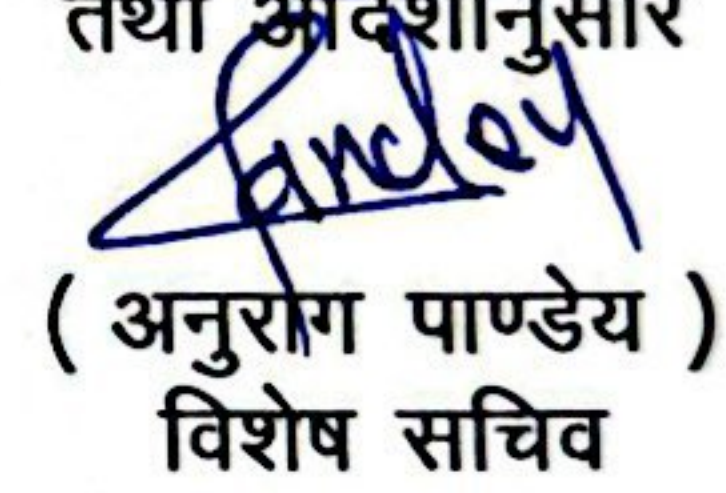 तथा आदेशानुसार
Pandey
( अनुराग पाण्डेय )
विशेष सचिव